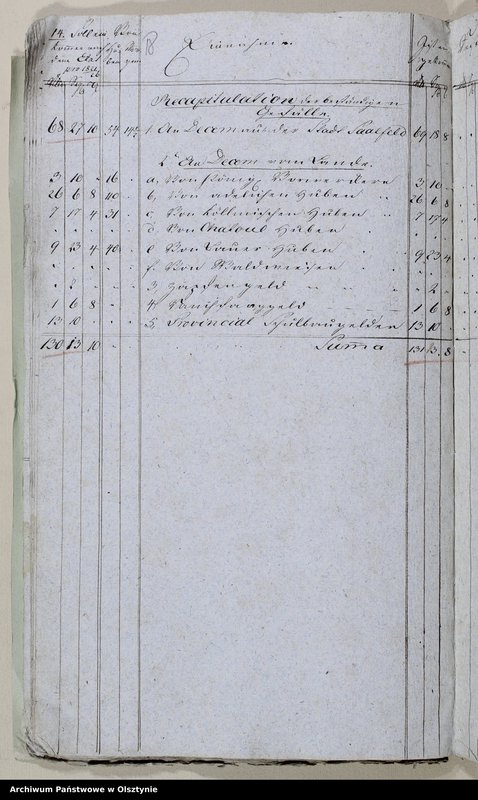 14. Sollen
dem Etat
Einnahme
Recapitulation der beständigen
Gefälle
68 27 10 54 1. An Decem aus der Stadt Saalfeld 69 18 8
2. An Decem vom Lande.
3 10 - 16 a, Von Königl. Vorwerken 3 10 -
26 6 8 40 b, Von adelichen Huben 26 6 8
7 17 4 31 c, Von Cöllmischen Huben 7 17 4
d. Von Chatoul Huben
9 13 4 40 e Von Bauer Huben 9 23 4
f. Von Waldwiesen
2 3, Gartengeld 2
1 6 8 4. 1 6 8
13 10 5. Provincial Schulbaugelder 13 10
130 13 10 Suma 131 13 8
Archiwum Państwowe w Olsztynie